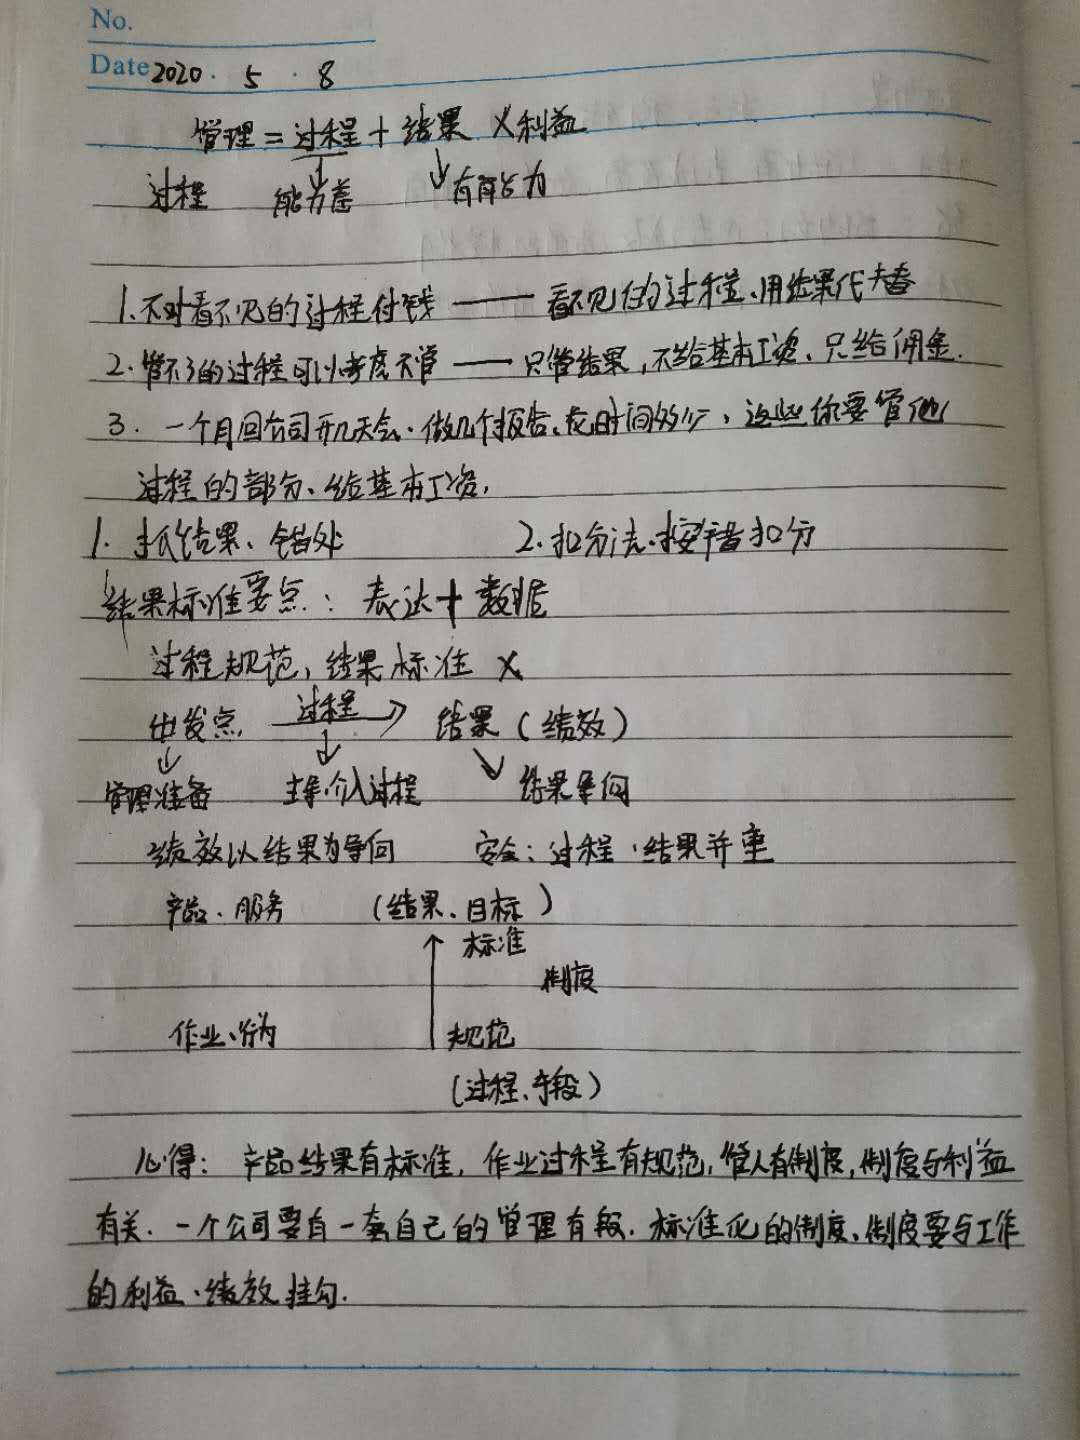 No.
Date 2020 · 5 · 8
管理 = 过程 + 结果 X 利益
过程 能力差 有能力
1. 不对看不见的过程付钱 —— 看不见的过程、用结果代替
2. 管不了的过程可以考虑不管 —— 只管结果，不给基本工资、只给佣金.
3. 一个月回公司开几天会、做几个报告、花时间多少、这些你要管他
过程的部分、给基本工资.
1. 抓结果、错处 2. 扣分法、按错扣分
结果标准要点：表达 + 数据
过程规范，结果标准 X
出发点 过程 结果（绩效）
管理准备 主导、介入过程 结果导向
绩效以结果为导向 安全：过程、结果并重
产品、服务 （结果、目标）
标准
制度
作业、行为 规范
（过程、手段）
心得：产品结果有标准，作业过程有规范，管人有制度，制度与利益
有关. 一个公司要有一套自己的管理有段. 标准化的制度、制度要与工作
的利益、绩效挂勾.